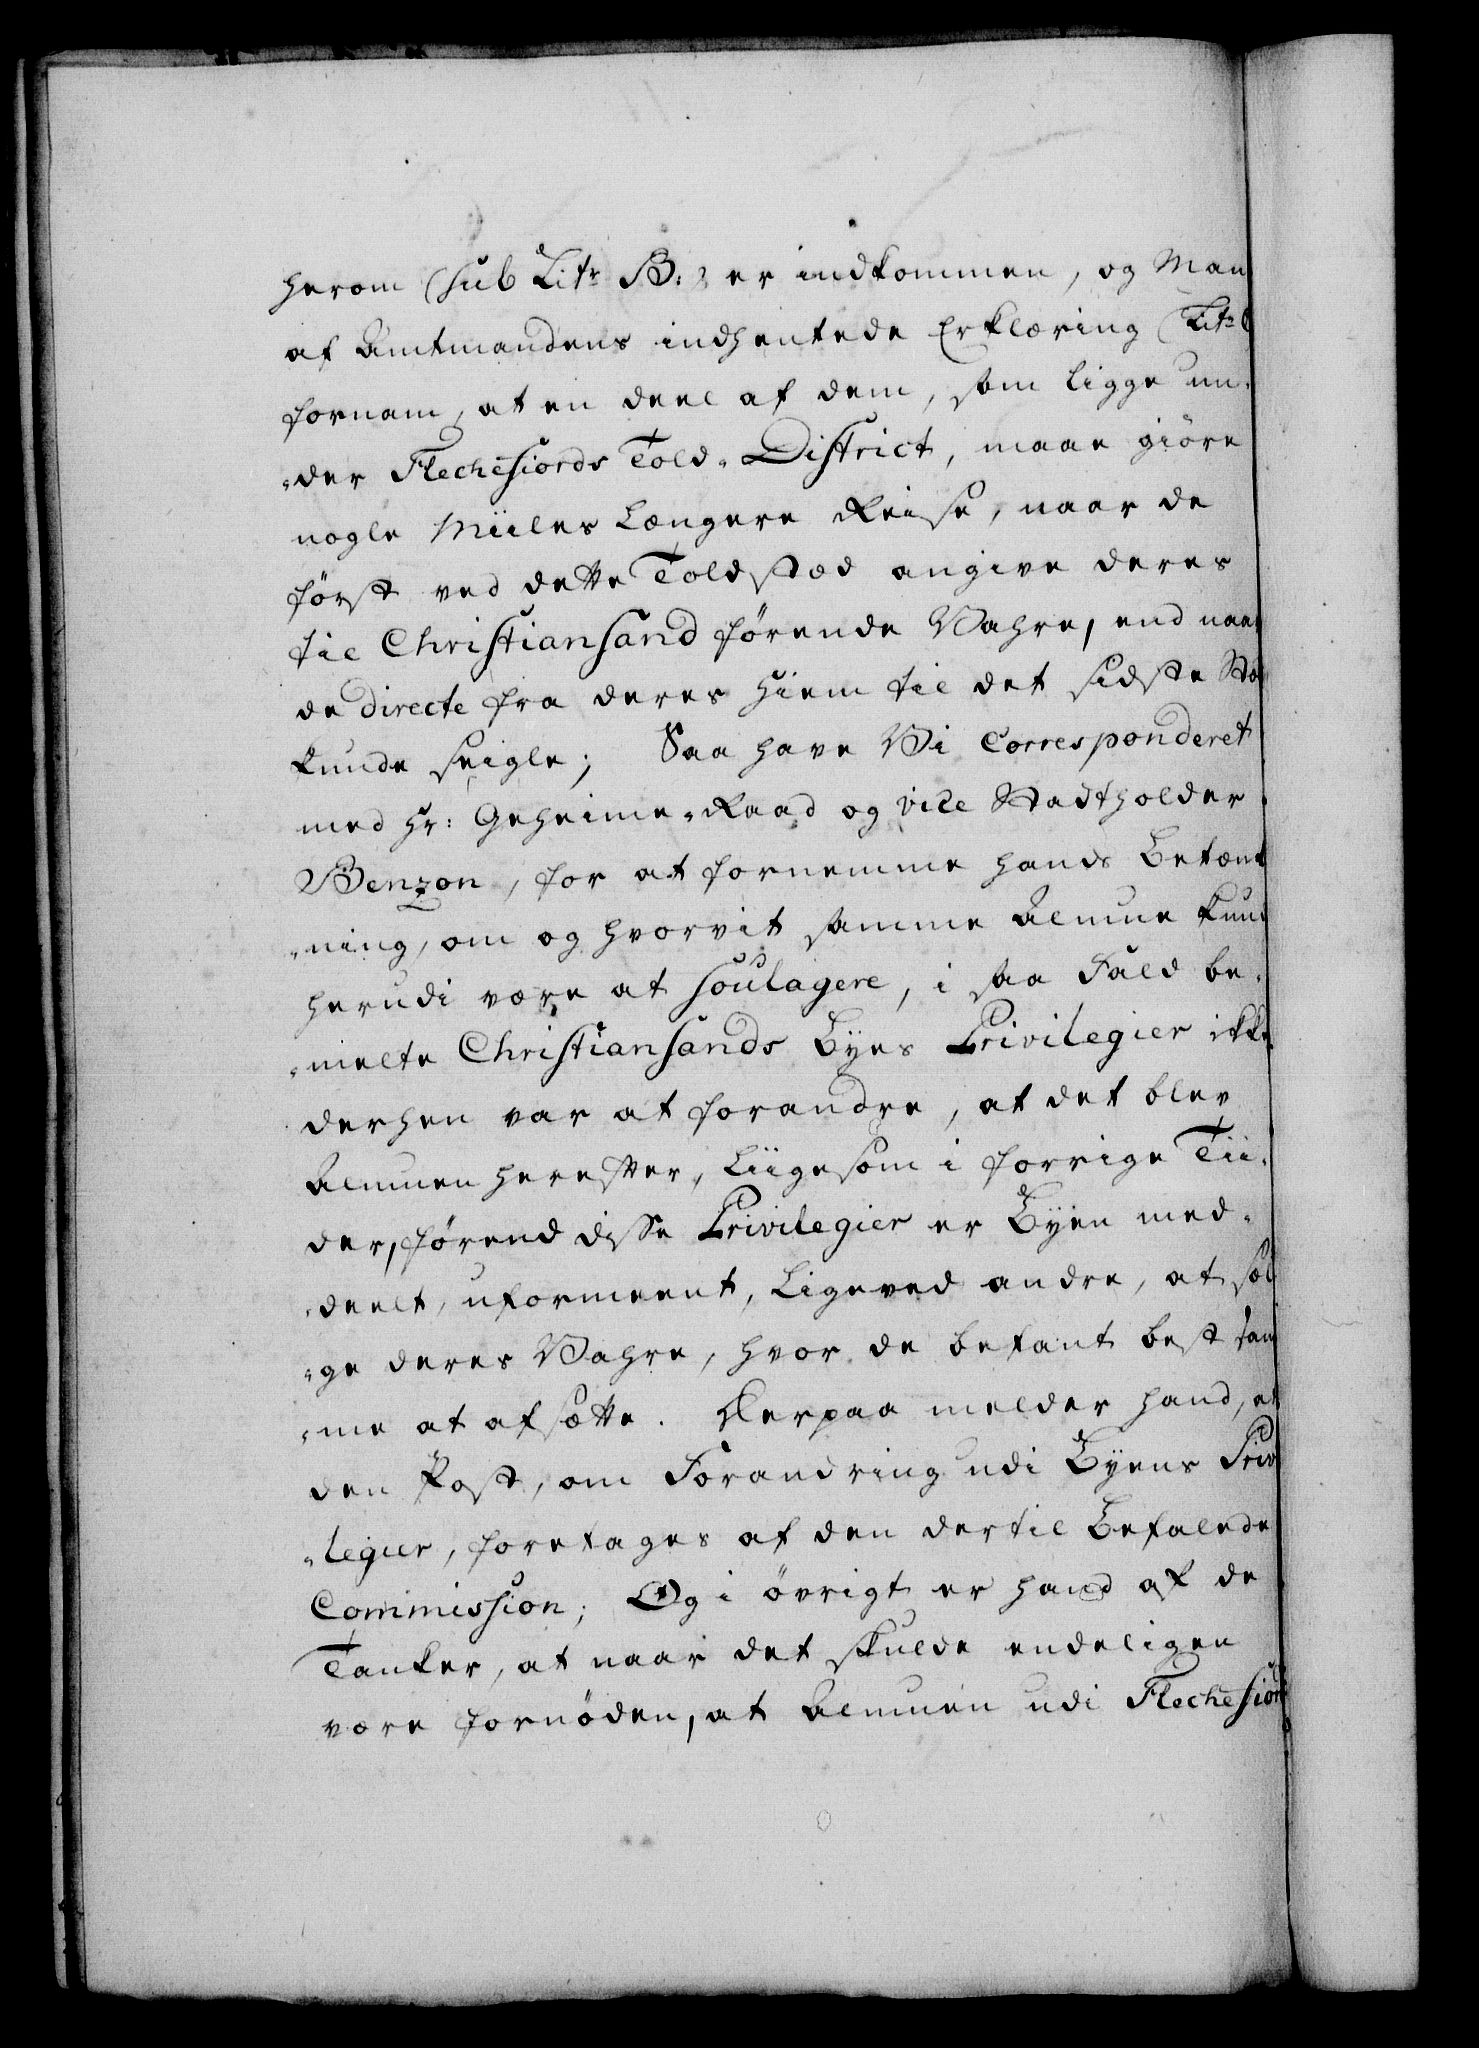 herom (sub Litr B:) er indkommen, og Man
af Amtmandens indhentede Erklæring (Litr
fornam, at en deel af dem, som ligge un-
-der Flechefiords Told-District, maae giöre
nogle Miiles Længere Reise, naar de
först ved dette Toldsted angive deres
til Christiansand förende Vahre, end naar
de directe fra deres Hiem til det sidste
kunde seigle; Saa have Vi Corresponderet
med Hr: Geheime-Raad og vice Stadtholder
Benzon, for at fornemme hands Betænk
-ning, om og hvorvit samme Almue kunde
herudi være at soulagere, i saa Fald be-
-melte Christiansands Byes Privilegier ikke
derhen var at forandre, at det blev
Almuen herefter, Liigesom i forrige Tii-
der, förend disse Privilegier er Byen med-
-deelt, uformeent, Ligeved andre, at sæl
-ge deres Vahre, hvor de befant best sam
-me at afsætte. Derpaa melder hand, at
den Post, om Forandring udi Byens Privi
-legier, foretages af den dertil Befalede
Commission; Og i övrigt er hand af de
Tanker, at naar det skulde endeligen
være fornöden, at Almuen udi Flechefiord